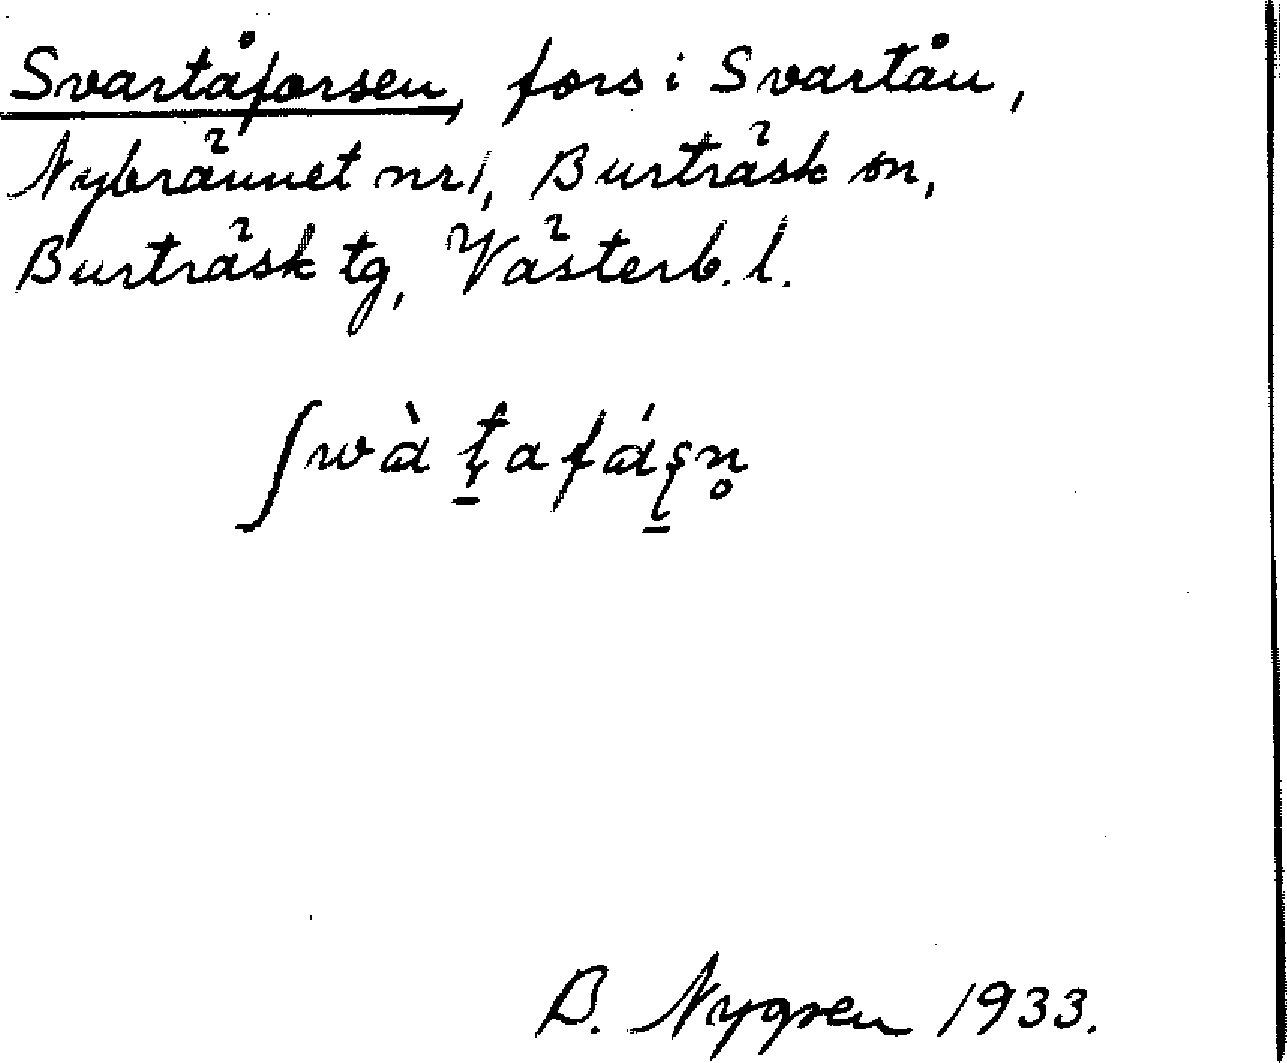 Svartåforsen, fors i Svartån,
Nybrännet nr 1, Burträsk sn,
Burträsk tg, Västerb. l.
ʃwàṯafáʂn̥
B. Nygren 1933.